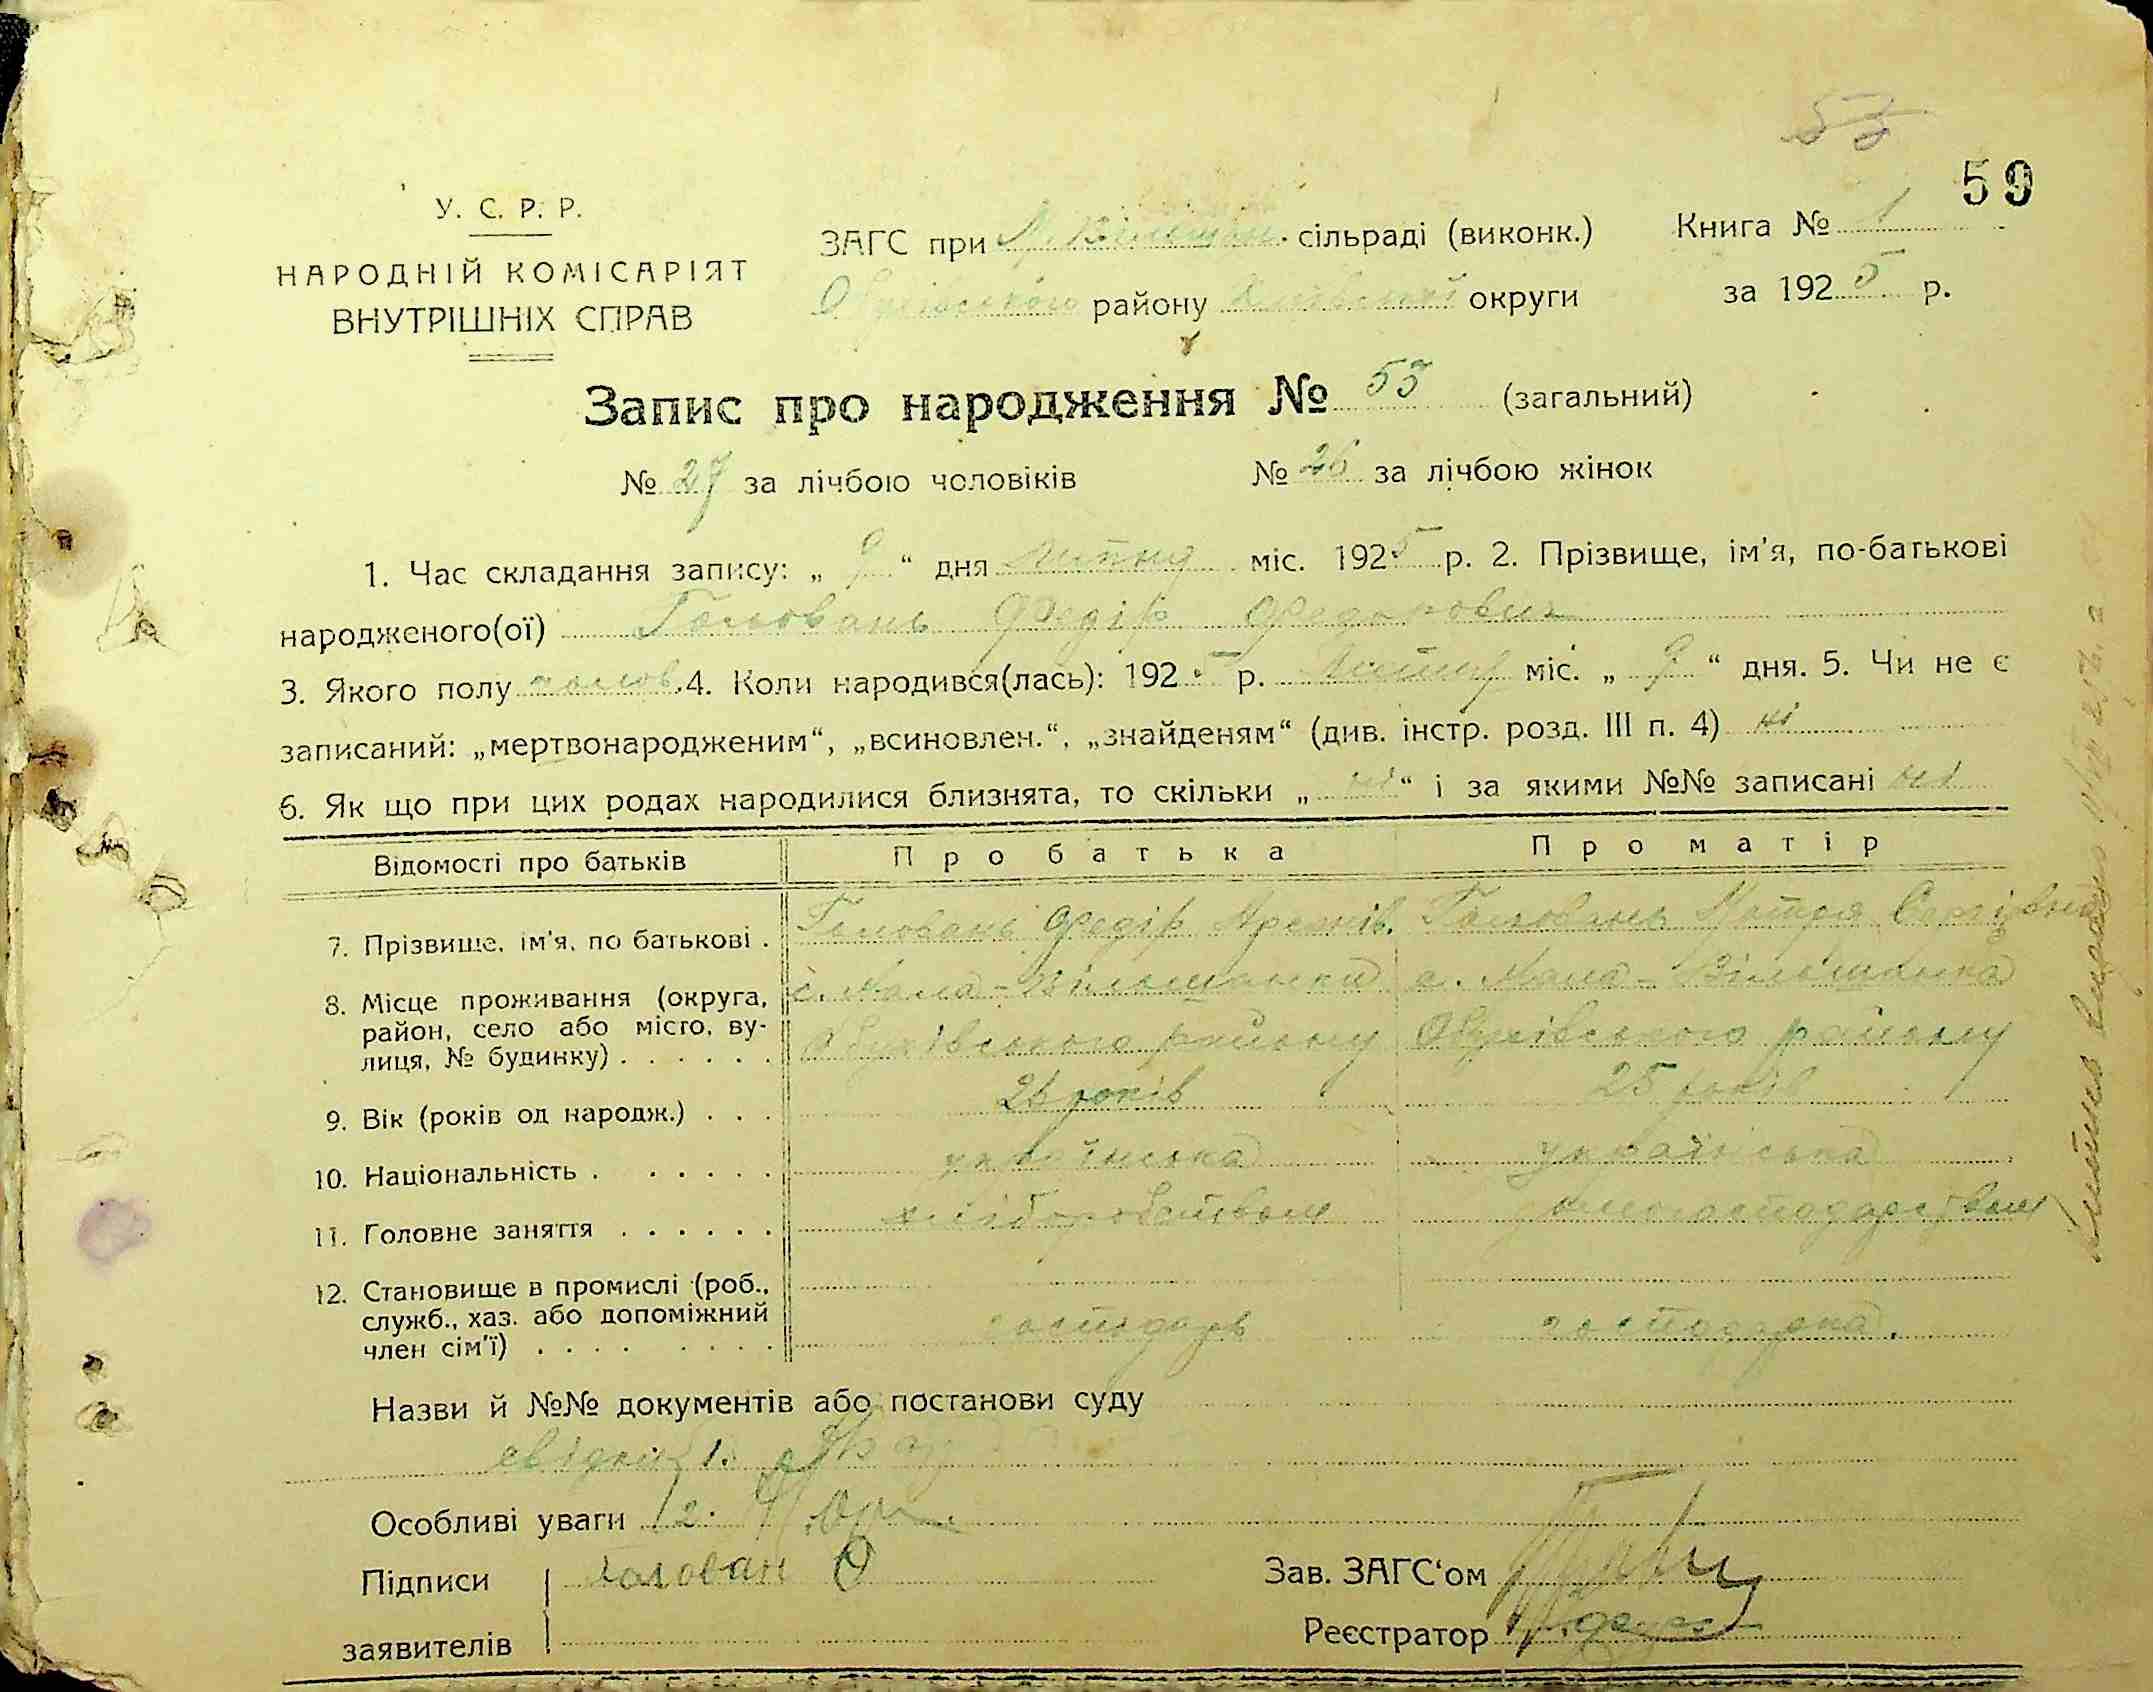 53
59
У. С. Р. Р.
НАРОДНІЙ КОМІСАРІЯТ
ВНУТРІШНІХ СПРАВ
ЗАГС при М. Вільшан. сільраді (виконк.)
Книга № 1
Обухівського району Київської округи
за 1925 р.
Запис про народження № 53 (загальний)
№ 27 за лічбою чоловіків № 26 за лічбою жінок
1. Час складання запису: „ 9 “ дня Липня міс. 1925 р. 2. Прізвище, ім'я, по-батькові
народженого(ої) Головань Федір Федорович
3. Якого полу чолов. 4. Коли народився(лась): 1925 р. Липня міс. „ 9 “ дня. 5. Чи не є
записаний: „мертвонародженим“, „всиновлен.“, „знайденям“ (див. інстр. розд. III п. 4) ні
6. Як що при цих родах народилися близнята, то скільки „ ні “ і за якими №№ записані ні
Відомості про батьків Про батька Про матір
7. Прізвище, ім'я, по батькові . Головань Федір Головань Мотря Сергіївна
8. Місце проживання (округа, с. Мала-Вільшанка с. Мала-Вільшанка
район, село або місто, ву- Обухівського району Обухівського району
лиця, № будинку) . . . . . .
9. Вік (років од народж.) . . . 26 років 25 років
10. Національність . . . . . . українська українська
11. Головне заняття . . . . . . хліборобством домогосподарством
12. Становище в промислі (роб.,
служб., хаз. або допоміжний господарь господарка.
член сім'ї) . . . . . . . .
Назви й №№ документів або постанови суду
свідки 1.
Особливі уваги 2.
Підписи Голован Ф
Зав. ЗАГС‘ом
заявителів
Реєстратор